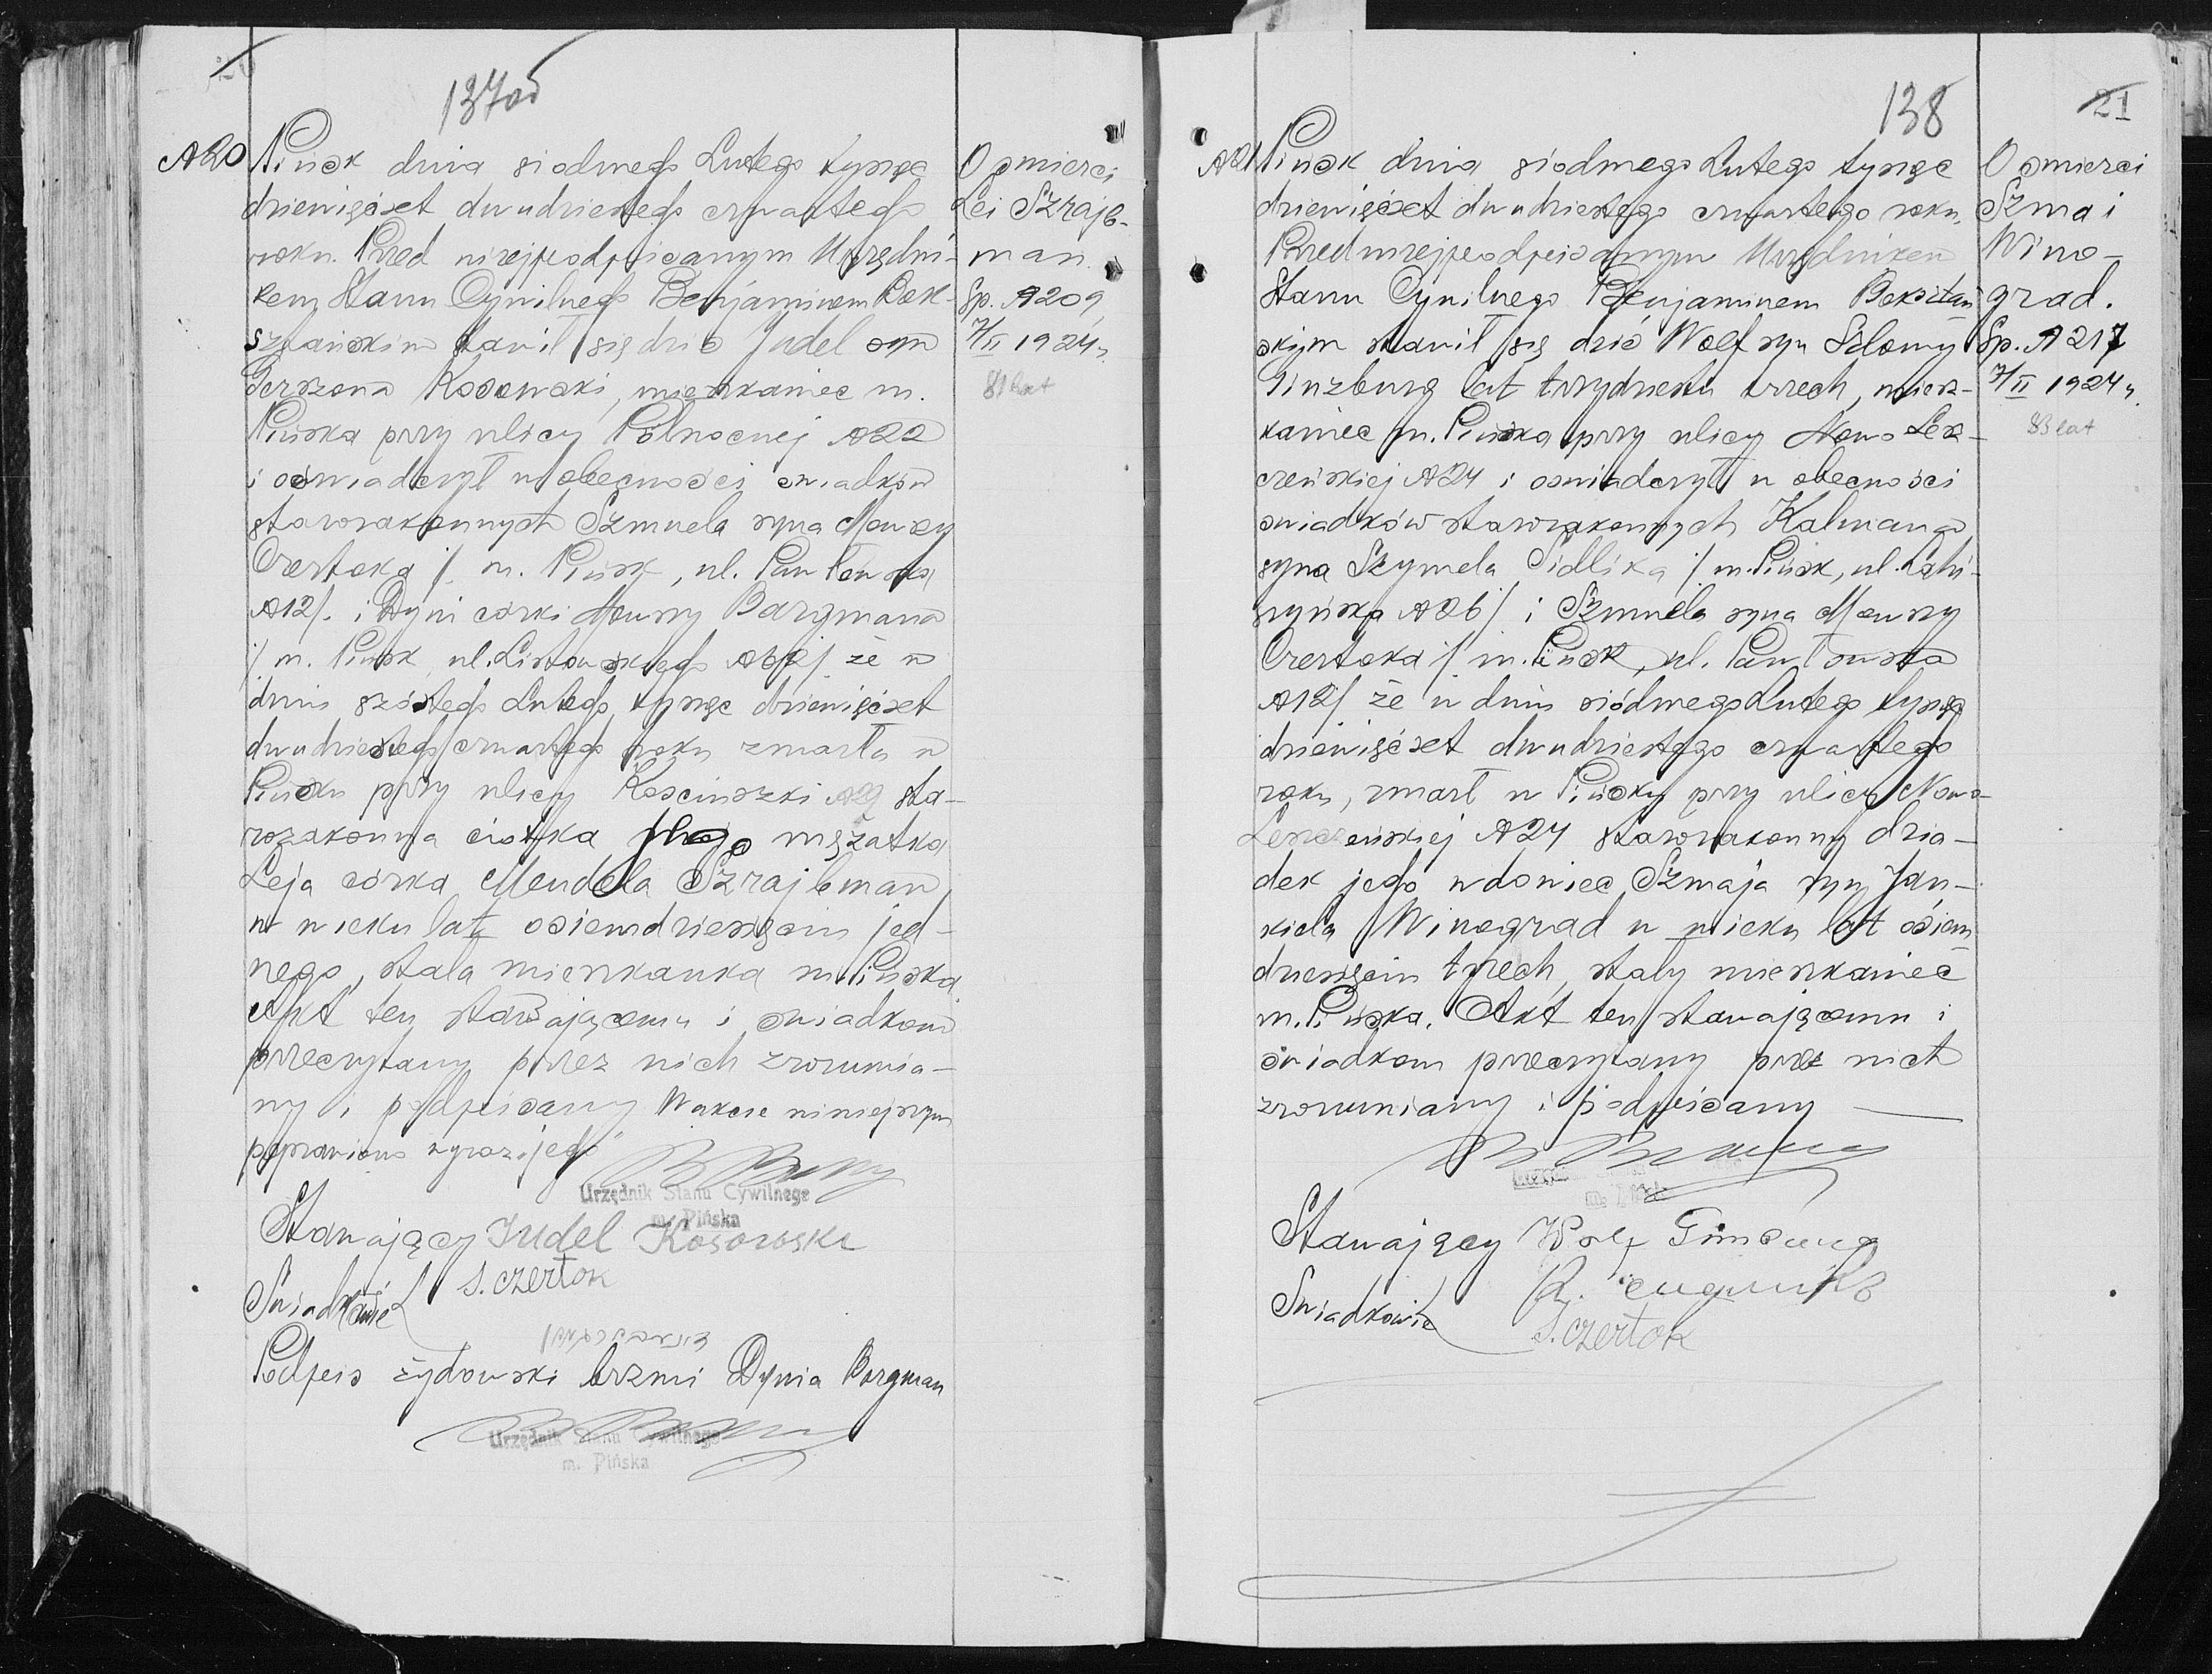 137od
№20
Pińsk dnia siodmego Lutego tysiąc
dziewięćset dwudziestego czwartego
roku. Przed niżejpodpisanym Urzędni-
kiem Stanu Cywilnego Benjaminem Bok-
sztańskim stawił się dziś Judel syn
Gerszona Kosowski, mieszkaniec m.
Pińska przy ulicy Północnej №22
i oświadczył w obecności świadków
starozakonnych Szmuela syna Mowszy
Czertoka /. m. Pińsk, ul. Pawłowska
№12/. i Dyni córki Mowszy Bargmana
/ m. Pińsk, ul. Listowskiego / że w
dniu szóstego Lutego tysiąc dziewięćset
dwudziestego czwartego roku zmarła w
Pińsku przy ulicy Kościuszki №29 sta-
rozakonna ciotka jego mężatka
Leja córka Mendela Szrajbman,
w wieku lat osiemdziesięciu jed-
nego, stała mieszkanka m. Pińska
Akt ten stawającemu i świadkom
przeczytany przez nich zrozumia-
ny i podpisany W akcie niniejszym
poprawiono wyraz "jego"
Urzędnik Stanu Cywilnego
m. Pińska
Stawający Judel Kosowski
Świadkowie S. Czertok
Podpis żydowski brzmi Dynia Borgman
Urzędnik Stanu Cywilnego
m. Pińska
O śmierci
Lei Szrajb-
man
Sp. №209
7/II 1924 r.
81 lat
138
21
№21
Pińsk dnia siódmego Lutego tysiąc
dziewięćset dwudziestego czwartego roku,
Przed niżejpodpisanym Urzędnikiem
Stanu Cywilnego Benjaminem Boksztań-
skim stawił się dziś Wolf syn Szlomy
Ginzburg lat trzydziestu trzech, miesz-
kaniec m. Pińska przy ulicy Nowo Lesz-
czeńskiej №24 i oświadczył w obecności
świadków starozakonnych Kalmana
syna Szymela Sidlika / m. Pińsk, ul. Lahi-
szyńska №26 / i Szmuela syna Mowszy
Czertoka / m. Pińsk, ul. Pawłowska
№12/ że w dniu siódmego Lutego tysiąc
dziewięćset dwudziestego czwartego
roku, zmarł w Pińsku przy ulicy Nowo-
Leszczeńskiej №24 starozakonny dzia-
dek jego wdowiec Szmaja syn Jan-
kiela Winograd w wieku lat osiem-
dziesięciu trzech, stały mieszkaniec
m. Pińska. Akt ten stawającemu i
świadkom przeczytany przez nich
zrozumiany i podpisany
Stawający Wolf
Świadkowie
S. Czertok
O śmierci
Szmai
Wino-
grad.
Sp. №217
7/II 1924 r.
83 lat